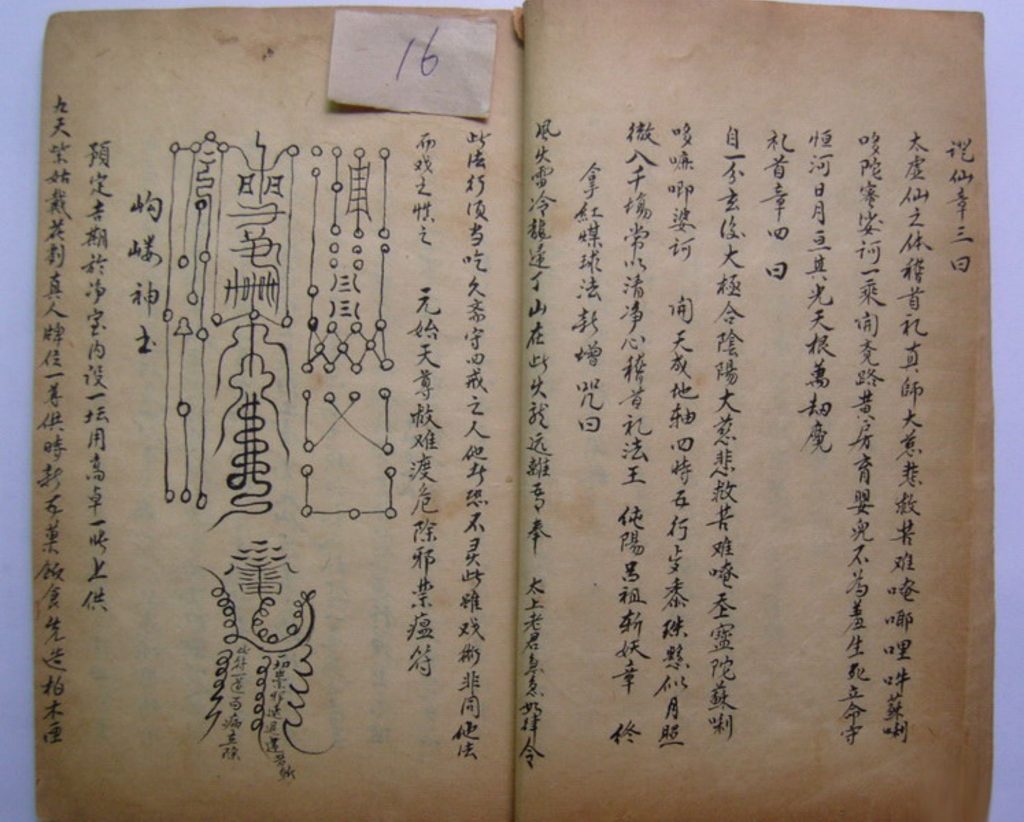 16
詵仙章三曰
太虛仙之体稽首礼真師大慈悲救苦难唵㖿哩吽蘇唎
哆陀寒娑訶一乘開堯路黃房育嬰兒不為羞生死立命守
恒河日月亘其光天根萬劫魔
礼首章四曰
自一分玄後大極合陰陽大慈悲救苦难唵 靈陀蘇唎
哆嚤唧婆訶 開天成地轴四時五行 黍珠懸似月照
徹八千場常以清净心稽首礼法王 純陽呂祖斬妖章 終
拿紅媒球法新增咒曰
風火雷冷龍 山在此火龍远離吾奉 太上老君急急如律令
此法行须当吃久斋守四戒之人他人恐不灵此雖戏術非同他法
而戏之慎之 元始天尊救难渡危除邪祟瘟符
此符一道百病立除
岣嶁神主
預定吉期於净室内设一坛用高卓一張上供
九天紫姑戴 真人牌位一尊供時新 菓飯食先造柏木匣